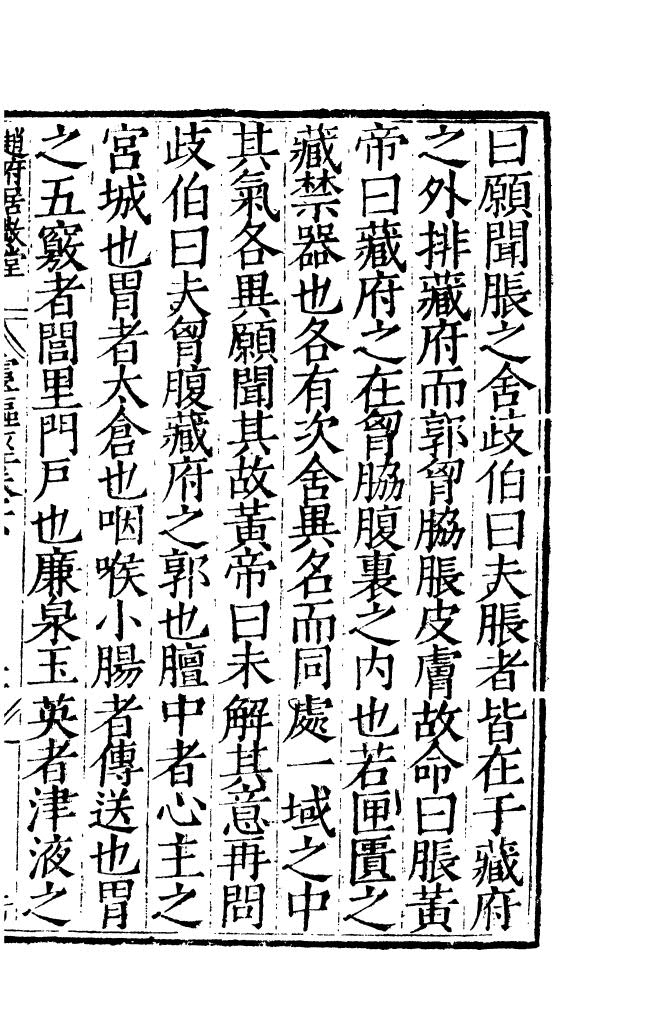 曰願聞脹之舍歧伯曰夫脹者皆在于藏府
之外排藏府而郭胷脇脹皮膚故命曰脹黃
帝曰藏府之在胷脇腹裏之内也若匣匱之
藏禁器也各有次舍異名而同處一域之中
其氣各異願聞其故黃帝曰未解其意再問
歧伯曰夫胷腹藏府之郭也膻中者心主之
宮城也胃者大倉也咽喉小腸者傳送也胃
之五竅者閭里門戶也廉泉玉英者津液之
趙府居敬堂